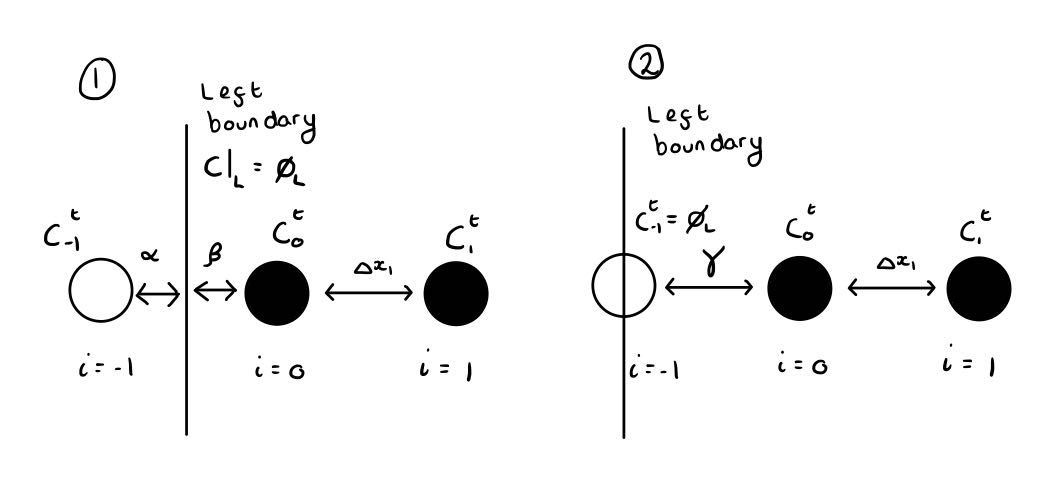 ①
Left
boundary
C|_L = φ_L
C_{-1}^t
α
β
C_0^t
Δx_1
C_1^t
i = -1
i = 0
i = 1
②
Left
boundary
C_{-1}^t = φ_L
γ
C_0^t
Δx_1
C_1^t
i = -1
i = 0
i = 1